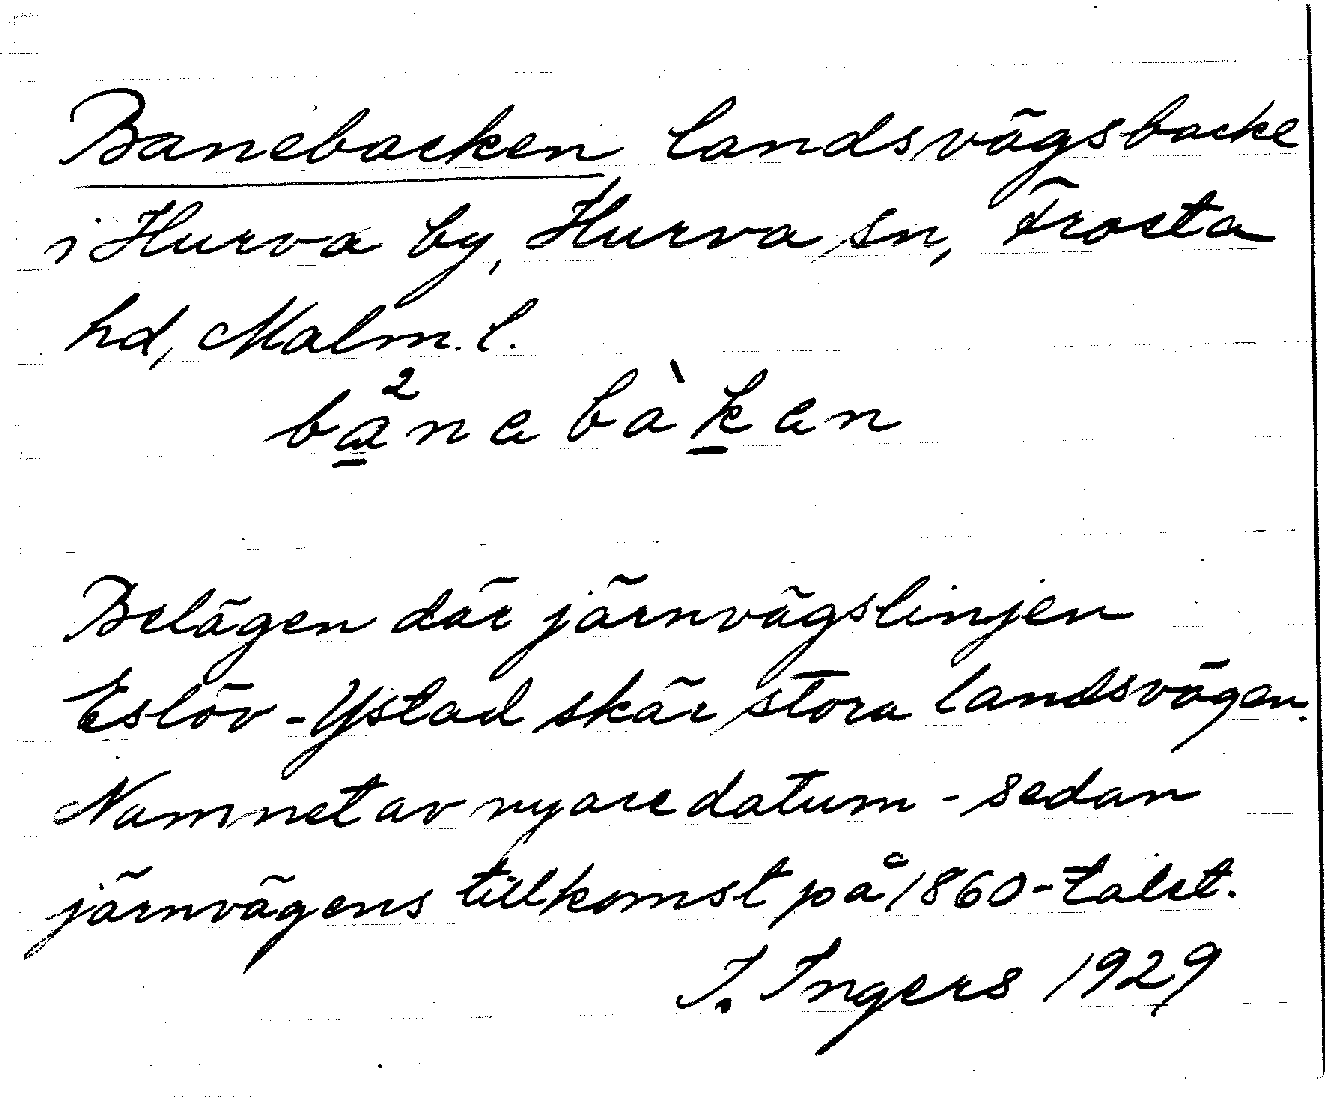 Banebacken landsvägsbacke
i Hurva by, Hurva sn, Frosta
hd, Malm. l.
ba̲²nebàk̲en
Belägen där järnvägslinjen
Eslöv-Ystad skär stora landsvägen.
Namnet av nyare datum - sedan
järnvägens tillkomst på 1860-talet.
I. Ingers 1929